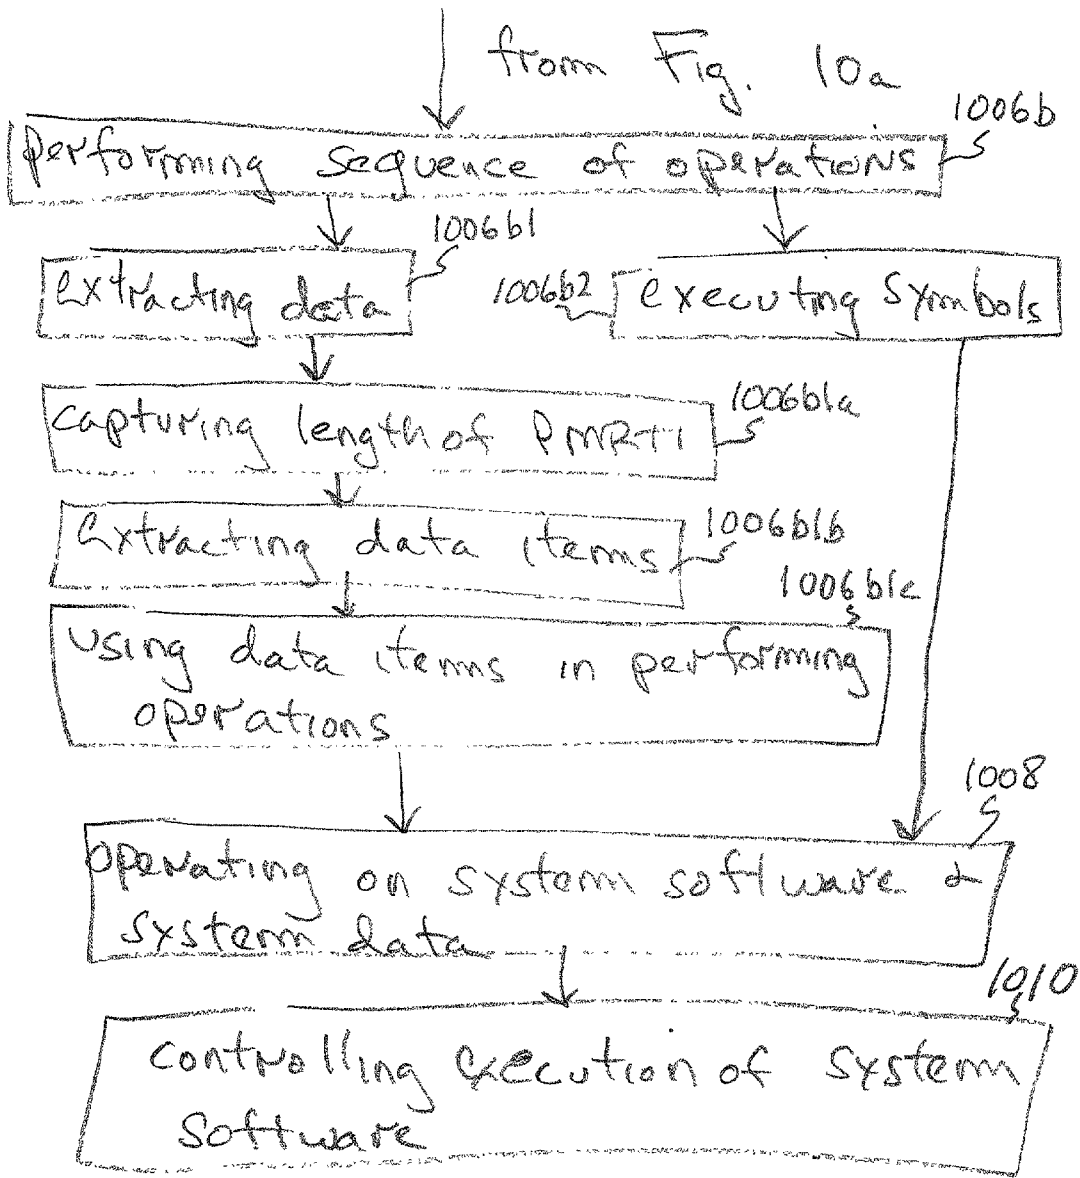 from Fig. 10a
1006b
performing sequence of operations
1006b1
extracting data
1006b2
executing symbols
capturing length of PMRTI
1006b1a
extracting data items
1006b1b
1006b1c
using data items in performing
operations
1008
operating on system software &
system data
1010
controlling execution of system
software